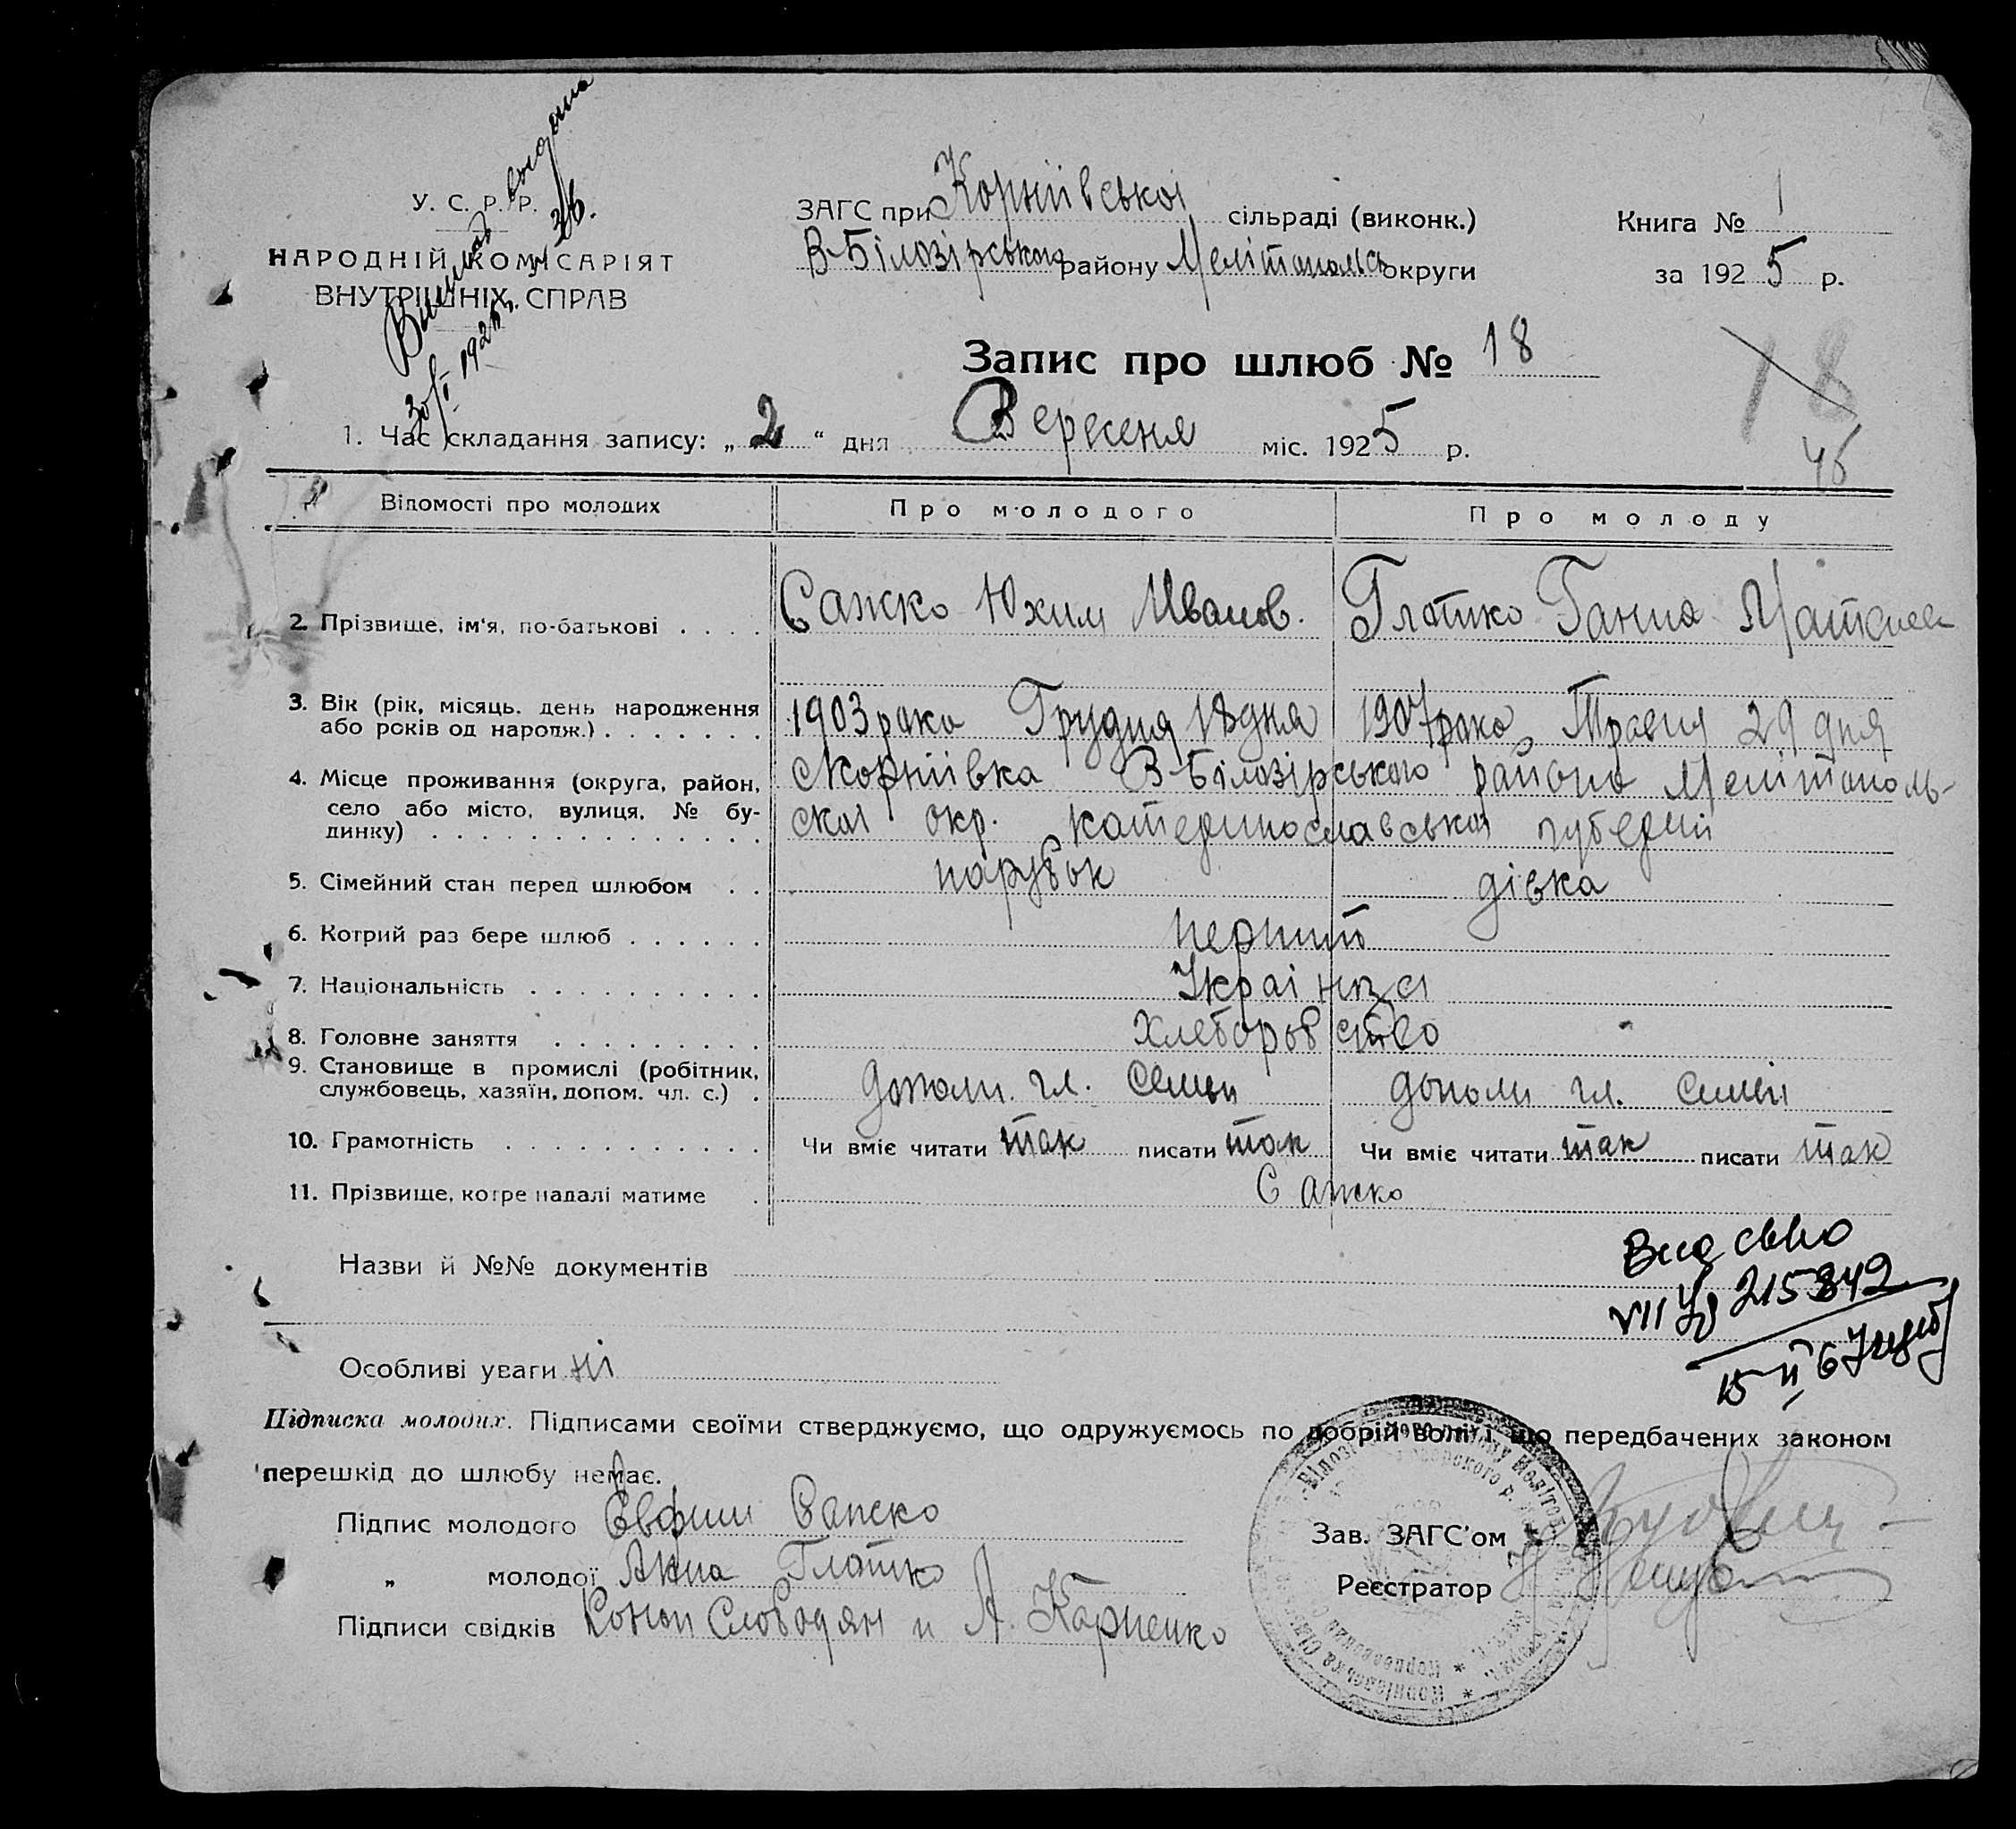 У. С. Р. Р.
НАРОДНІЙ КОМІСАРІЯТ
ВНУТРІШНІХ СПРАВ
ЗАГС при Корніівськоі сільраді (виконк.)
В-Білозірського району Мелітопольсь округи
Книга № 1
за 1925 р.
Запис про шлюб № 18
18
46
1. Час складання запису: „ 2 “ дня Вересеня міс. 1925 р.
Відомості про молодих Про молодого Про молоду
2. Прізвище, ім'я, по-батькові . . . . Сажко Юхим Иванов. Глатко Ганна
3. Вік (рік, місяць, день народження
або років од народж.) . . . . . . . 1903 рака Грудня 18 дня 1907 рака Травня 29 дня
4. Місце проживання (округа, район,
село або місто, вулиця, № бу-
динку) . . . . . . . . . . . . . .
Корніівка В-Білозірського района Мелітополь-
скоі окр. Катеринославськоі губерніі
5. Сімейний стан перед шлюбом . . парубок дівка
6. Котрий раз бере шлюб . . . . . . перший
7. Національність . . . . . . . . . . Украінця
8. Головне заняття . . . . . . . . . Хлеборобство
9. Становище в промислі (робітник,
службовець, хазяїн, допом. чл. с.) . допом. чл. семьи допом чл. семьи
10. Грамотність . . . . . . . . . . . Чи вміє читати так писати так Чи вміє читати так писати так
11. Прізвище, котре надалі матиме . Сажко
Назви й №№ документів
Видано
VII 215842
15 II 67
Особливі уваги ні
Підписка молодих. Підписами своїми стверджуємо, що одружуємось по добрій волі і що передбачених законом
перешкід до шлюбу немає.
Підпис молодого Євфим Сажко
„ молодої Анна Глатко
Підписи свідків Слободян и А. Карпенко
Зав. ЗАГС'ом
Реєстратор